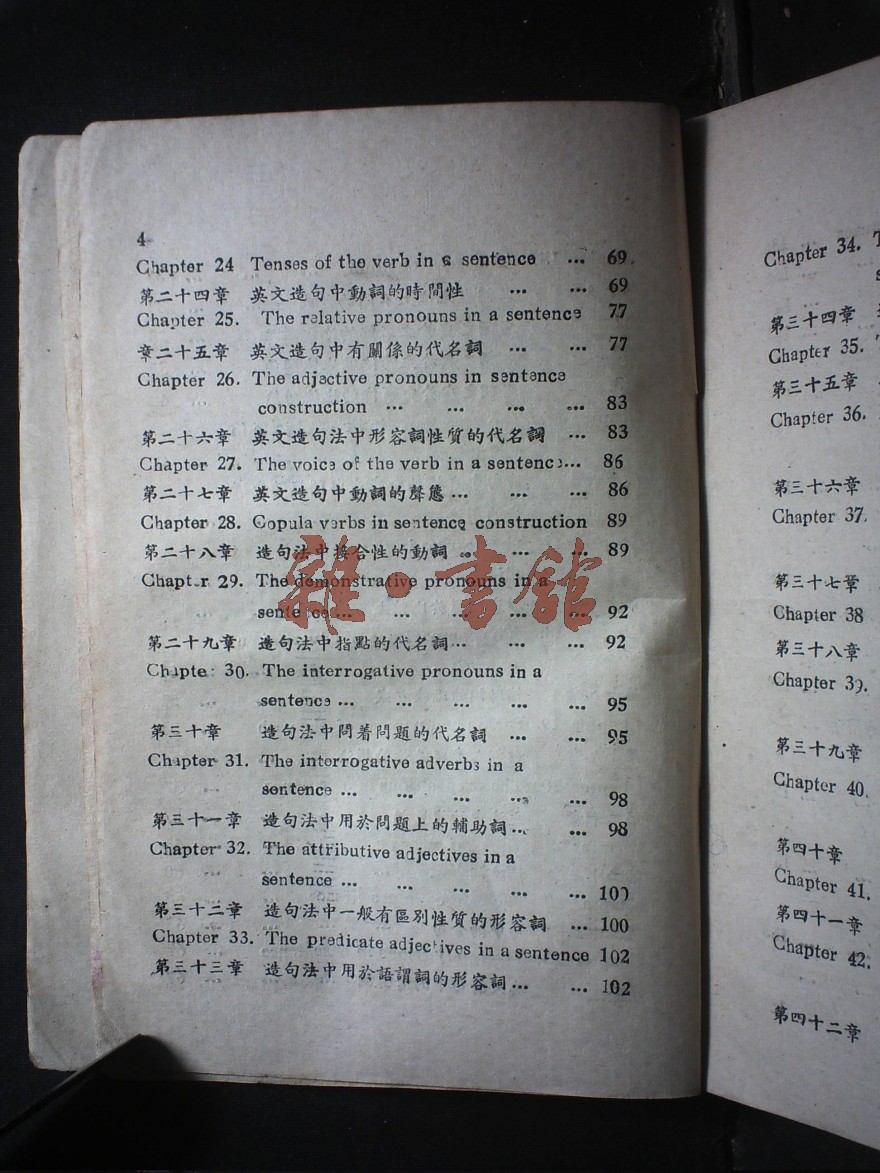 4
Chapter 24 Tenses of the verb in a sentence ... 69
第二十四章 英文造句中動詞的時間性 ... ... 69
Chapter 25. The relative pronouns in a sentence 77
章二十五章 英文造句中有關係的代名詞 ... ... 77
Chapter 26. The adjective pronouns in sentence
construction ... ... ... ... 83
第二十六章 英文造句法中形容詞性質的代名詞 ... 83
Chapter 27. The voice of the verb in a sentence... 86
第二十七章 英文造句中動詞的聲態... ... ... 86
Chapter 28. Copula verbs in sentence construction 89
第二十八章 造句法中接合性的動詞 ... ... ... 89
Chapter 29. The demonstrative pronouns in a
sentence... ... ... ... ... 92
第二十九章 造句法中指點的代名詞... ... ... 92
Chapter 30. The interrogative pronouns in a
sentence ... ... ... ... ... 95
第三十章 造句法中問着問題的代名詞 ... ... 95
Chapter 31. The interrogative adverbs in a
sentence ... ... ... ... ... 98
第三十一章 造句法中用於問題上的輔助詞... ... 98
Chapter 32. The attributive adjectives in a
sentence ... ... ... ... ... 100
第三十二章 造句法中一般有區別性質的形容詞 ... 100
Chapter 33. The predicate adjectives in a sentence 102
第三十三章 造句法中用於語謂詞的形容詞... ... 102
雜·書館
Chapter 34.
第三十四章
Chapter 35.
第三十五章
Chapter 36.
第三十六章
Chapter 37.
第三十七章
Chapter 38
第三十八章
Chapter 39.
第三十九章
Chapter 40.
第四十章
Chapter 41.
第四十一章
Chapter 42.
第四十二章